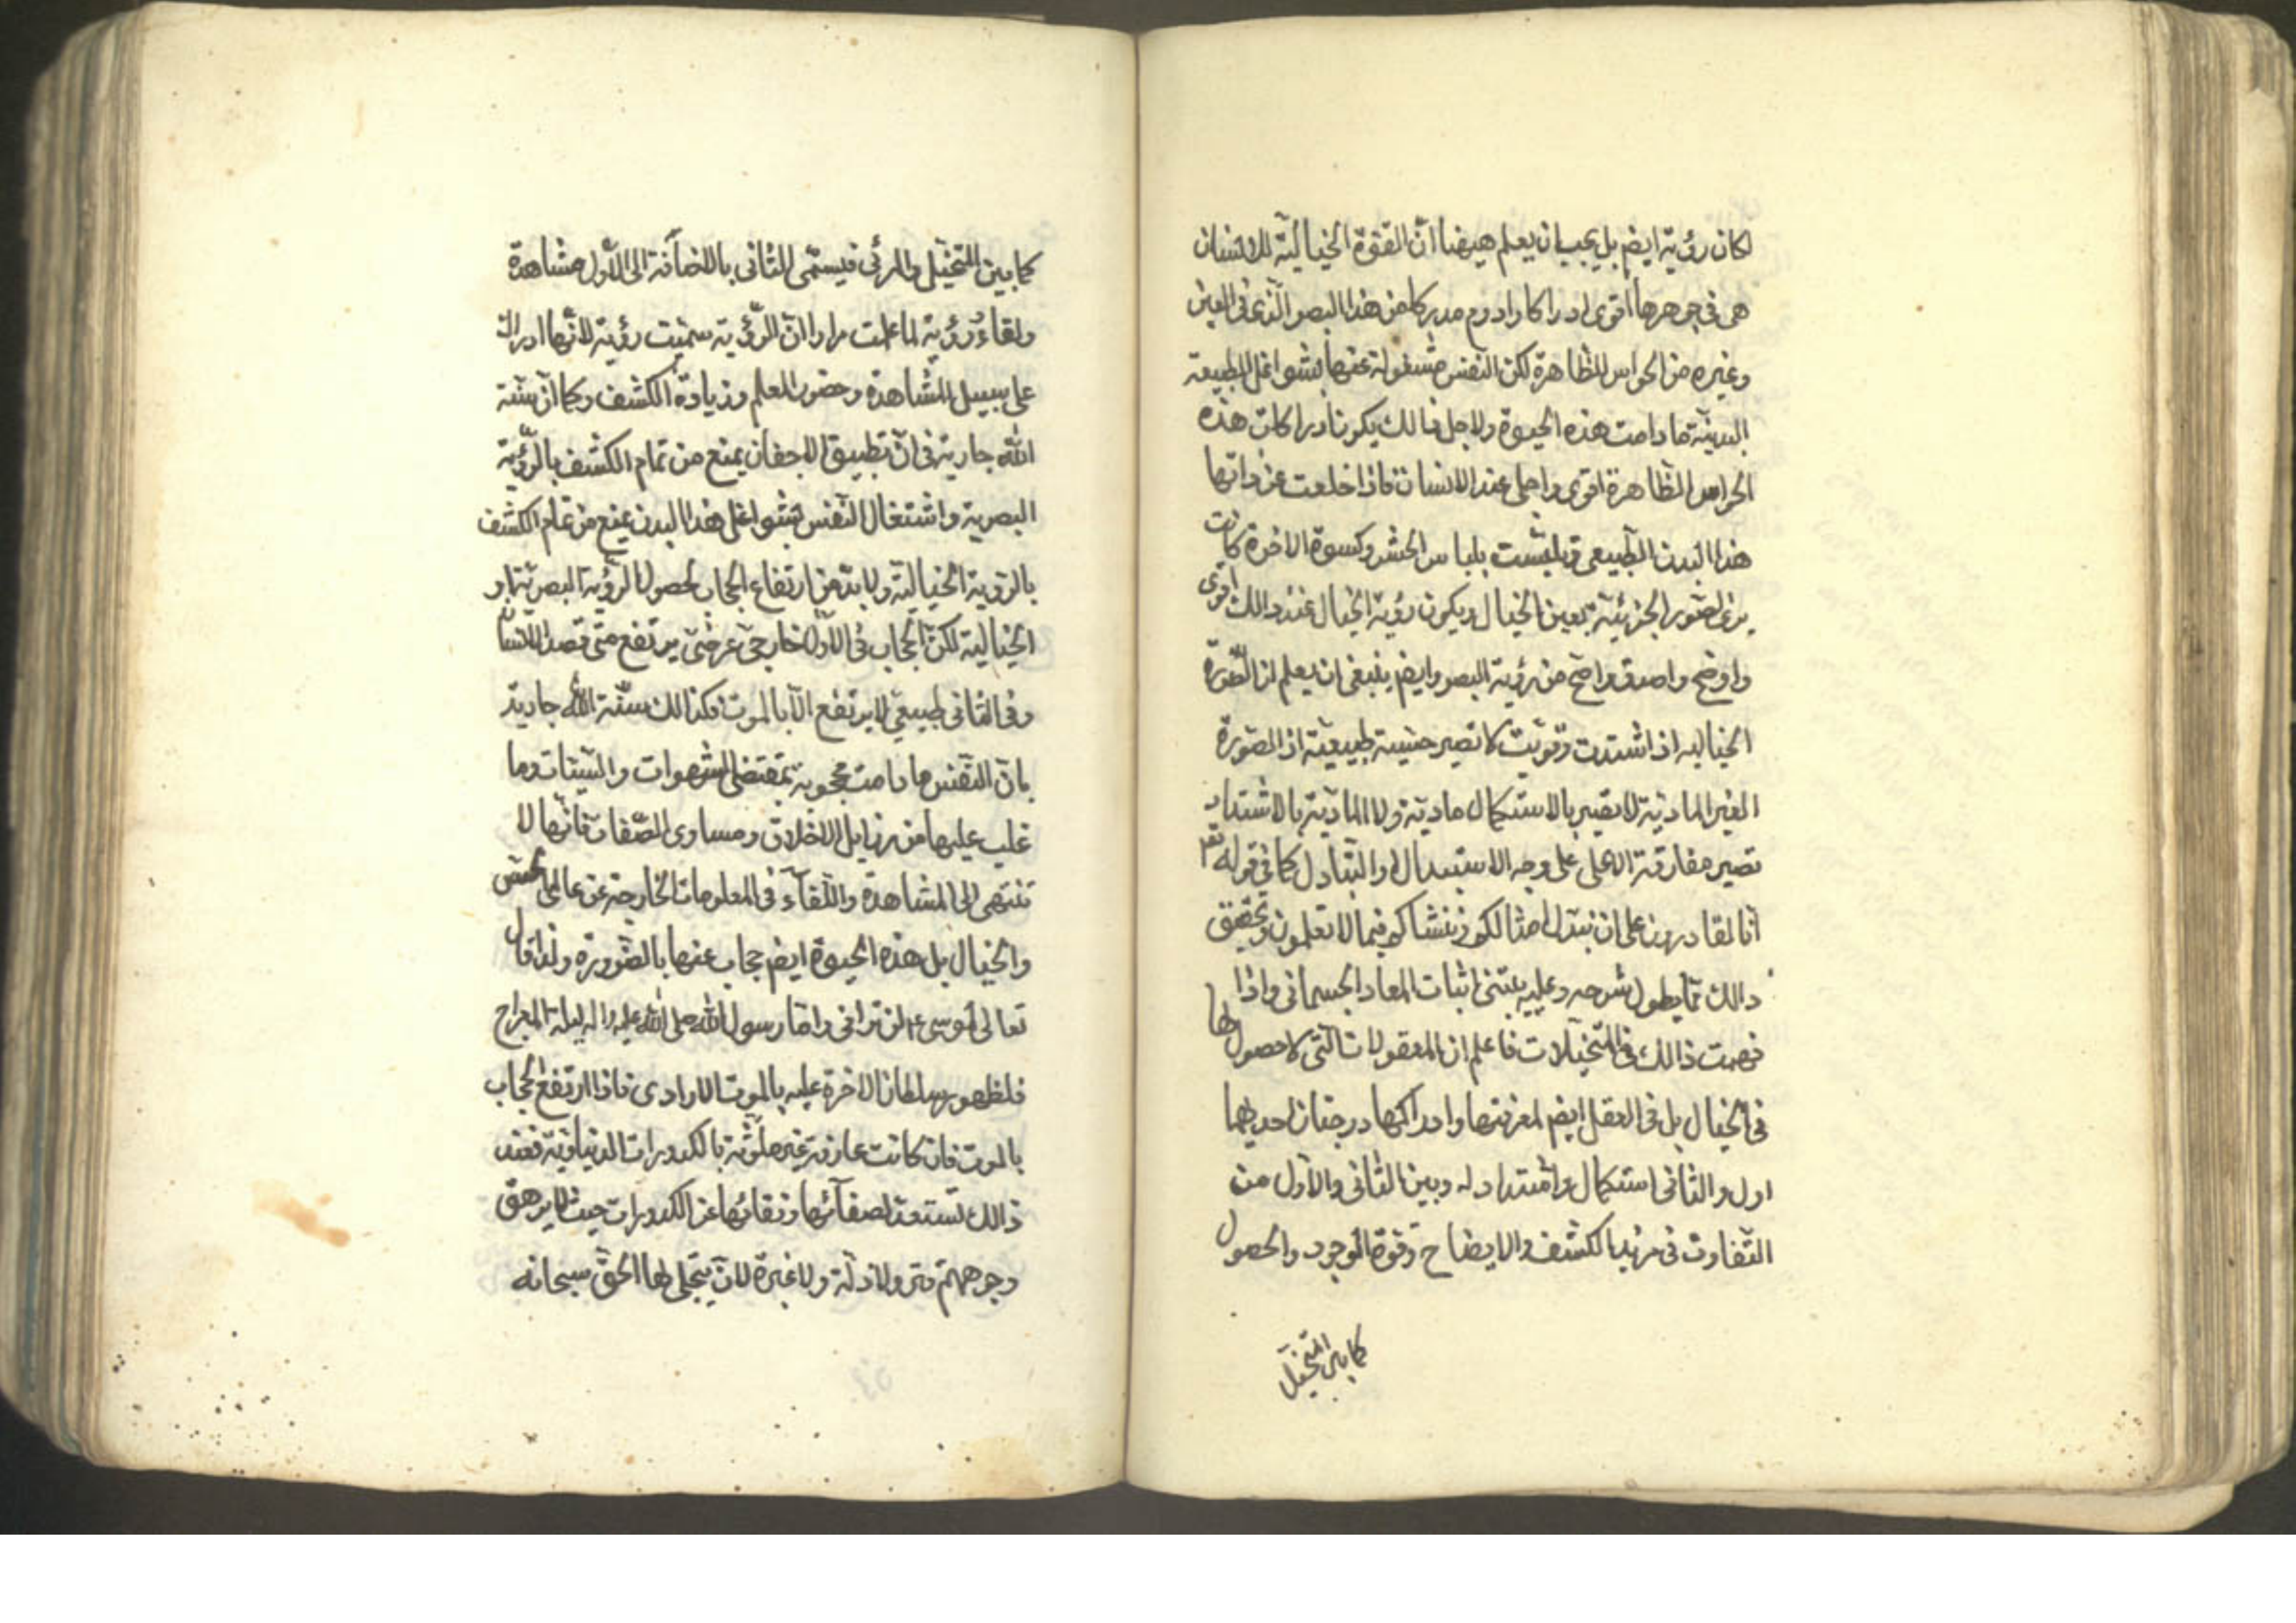 لكان رؤية ايضم بل يجب ان يعلم هيهنا ان القوة الخيالية للانسان
هى فى جوهرها اقوى ادراكا وادوم مدركا من هذا البصر الذى فى العين
وغيره من الحواس الظاهرة لكن النفس مشغولة عنها بشواغل الطبيعة
البدنية ما دامت هذه الحيوة ولاجل ذالك يكون ادراكات هذه
الحواس الظاهرة اقوى واجلى عند الانسان فاذا خلعت عن ذاتها
هذا البدن الطبيعى وتلبست بلباس الحشر وكسوة الاخرة كانت
يرى الصور الجزئية بعين الخيال ويكون رؤية الخيال عند ذالك اقوى
واوضح واصدق واصح من رؤية البصر وايضم ينبغى ان يعلم ان الصورة
الخياليه اذ اشتدت وقويت لا تصير حسية طبيعية اذ الصورة
الغير المادية لا تصير بالاستكمال مادية ولا المادية بالاشتداد
تصير مفارقة الا على على وجه الاستبدال والتبادل كما فى قوله تعم
انا لقادرون على ان نبدل امثالكم وننشاكم فيما لا تعلمون وتحقيق
ذالك مما يطول شرحه وعليه يبتنى اثبات المعاد الجسمانى واذا
فهمت ذالك فى التخيلات فاعلم ان المعقولات التى لا حصول لها
فى الخيال بل فى العقل ايضم لمعرفتها وادراكها درجتان احديهما
اول والثانى استكمال وامتداد له وبين الثانى والاول من
التفاوت فى مزيد الكشف والايضاح وقوة الوجود والحصول
كما بين المتخيل
كما بين المتخيل والمرئى فيسمى الثانى بالاضافة الى الاول مشاهدة
ولقاء ورؤية لما علمت مرارا ان الرؤية سميت رؤية لانها ادراك
على سبيل المشاهدة وحضور المعلم وزيادة الكشف وكما ان سنة
الله جارية فى ان تطبيق الاجفان يمنع من تمام الكشف بالرؤية
البصرية واشتغال النفس بشواغل هذا البدن يمنع من تمام الكشف
بالروية الخيالية ولا بد من ارتفاع الحجاب لحصول الرؤية البصرية او
الخيالية لكن الحجاب فى الاول خارجى عرضى يرتفع متى قصد الانسان
وفى الثانى طبيعى لا يرتفع الا بالموت فكذالك سنة الله جارية
بان النفس ما دامت محجوبة بمقتضى الشهوات والسيئات وما
غلب عليها من رزايل الاخلاق ومساوى الصفات فانها لا
تنتهى الى المشاهدة واللقاء فى المعلومات الخارجة عن عالمى الحس
والخيال بل هذه الحيوة ايضم حجاب عنها بالضرورة ولذا قال
تعالى لموسى ع لن ترانى واما رسول الله صلى الله عليه واله ليلة المعراج
فلظهور سلطان الاخرة عليه بالموت الارادى فاذا ارتفع الحجاب
بالموت فان كانت عارفة غير ملوثة بالكدورات الدنياوية فعند
ذالك تستعد لصفائها ونقائها عن الكدورات حيث لا يرهق
وجوههم قتر ولا ذلة ولا غبرة لان يتجلى لها الحق سبحانه